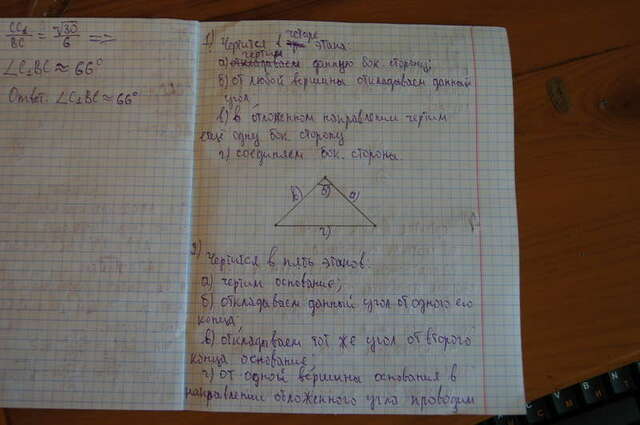 CC₁/BC = √30/6 =>
∠C₁BC ≈ 66°
Ответ: ∠C₁BC ≈ 66°
1) Чертится в четыре этапа:
а) чертим данную бок. сторону;
б) от любой вершины откладываем данный
угол
в) в отложенном направлении чертим
ещё одну бок. сторону
г) соединяем бок. стороны
в) б) а)
г)
2) Чертится в пять этапов:
а) чертим основание;
б) откладываем данный угол от одного его
конца;
в) откладываем тот же угол от второго
конца основание;
г) от одной вершины основания в
направлении отложенного угла проводим